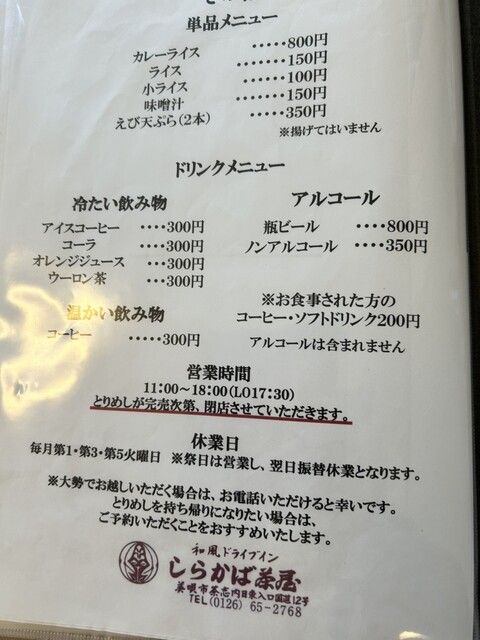 単品メニュー
カレーライス ・・・・・800円
ライス ・・・・・・150円
小ライス ・・・・・・100円
味噌汁 ・・・・・・150円
えび天ぷら(2本) ・・・・・350円
※揚げてはいません
ドリンクメニュー
冷たい飲み物
アイスコーヒー ・・・・300円
コーラ ・・・・300円
オレンジジュース ・・・300円
ウーロン茶 ・・・300円
温かい飲み物
コーヒー ・・・・・300円
アルコール
瓶ビール ・・・・800円
ノンアルコール ・・・・350円
※お食事された方の
コーヒー・ソフトドリンク200円
アルコールは含まれません
営業時間
11:00～18:00(LO17:30)
とりめしが完売次第、閉店させていただきます。
休業日
毎月第1・第3・第5火曜日 ※祭日は営業し、翌日振替休業となります。
※大勢でお越しいただく場合は、お電話いただけると幸いです。
とりめしを持ち帰りになりたい場合は、
ご予約いただくことをおすすめいたします。
和風ドライブイン
しらかば茶屋
美唄市茶志内日東入口国道12号
TEL(0126) 65-2768